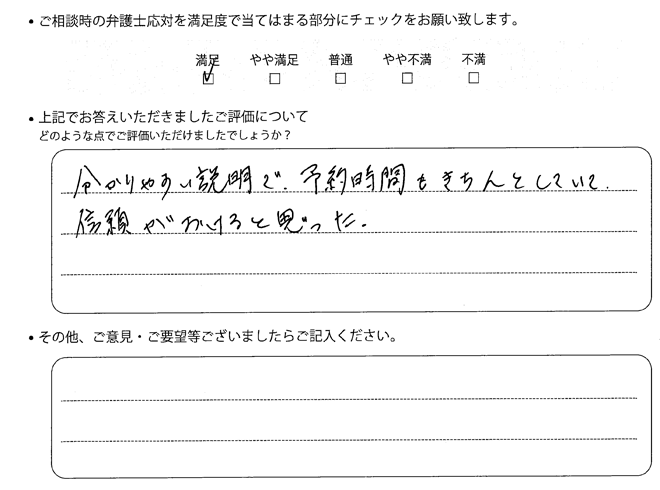 • ご相談時の弁護士応対を満足度で当てはまる部分にチェックをお願い致します。
満足 やや満足 普通 やや不満 不満
☑ □ □ □ □
• 上記でお答えいただきましたご評価について
どのような点でご評価いただけましたでしょうか？
分かりやすい説明で、予約時間もきちんとしていて、
信頼がおけると思った。
• その他、ご意見・ご要望等ございましたらご記入ください。